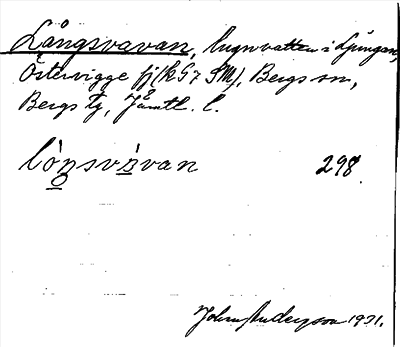 Långsvavan, lugnvatten i Ljungan,
Östervigge fj (k 57 SM), Bergs sn,
Bergs tg, Jämtl. l.
lòŋsvàvan 298.
John Anderzon 1931.